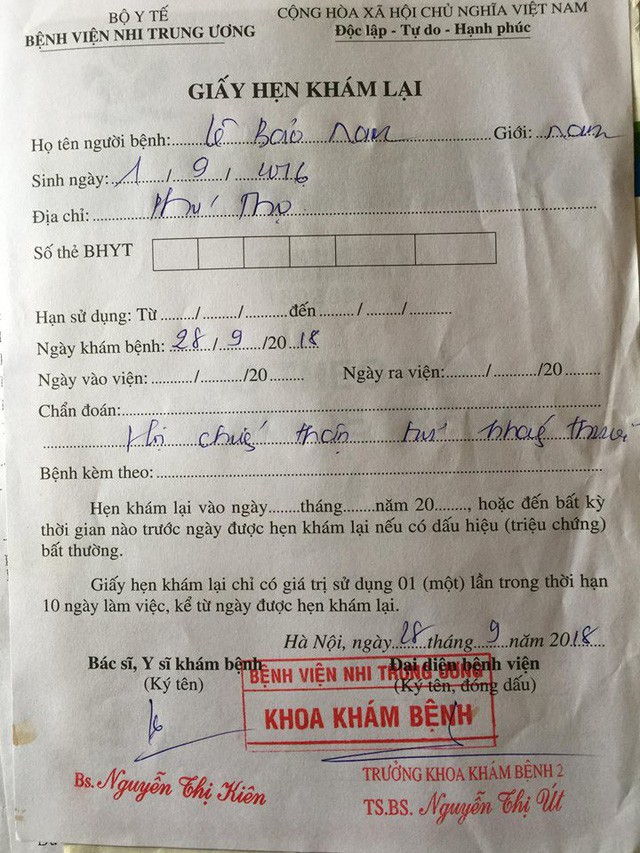 BỘ Y TẾ
BỆNH VIỆN NHI TRUNG ƯƠNG
CỘNG HÒA XÃ HỘI CHỦ NGHĨA VIỆT NAM
Độc lập - Tự do - Hạnh phúc
GIẤY HẸN KHÁM LẠI
Họ tên người bệnh: Lê Bảo Nam Giới: nam
Sinh ngày: 1 / 9 / 2016
Địa chỉ: Phú Thọ
Số thẻ BHYT
Hạn sử dụng: Từ ......../......../..........đến ........./......../...........
Ngày khám bệnh: 28 / 9 /20 18
Ngày vào viện: ........./........../20 ........ Ngày ra viện:........./........../20 ........
Chẩn đoán:
Hội chứng thận hư kháng thuốc
Bệnh kèm theo:
Hẹn khám lại vào ngày.......tháng.........năm 20........, hoặc đến bất kỳ
thời gian nào trước ngày được hẹn khám lại nếu có dấu hiệu (triệu chứng)
bất thường.
Giấy hẹn khám lại chỉ có giá trị sử dụng 01 (một) lần trong thời hạn
10 ngày làm việc, kể từ ngày được hẹn khám lại.
Hà Nội, ngày 28 tháng 9 năm 2018
Bác sĩ, Y sĩ khám bệnh
(Ký tên)
Đại diện bệnh viện
(Ký tên, đóng dấu)
BỆNH VIỆN NHI TRUNG ƯƠNG
KHOA KHÁM BỆNH
Bs. Nguyễn Thị Kiên
TRƯỞNG KHOA KHÁM BỆNH 2
TS.BS. Nguyễn Thị Út